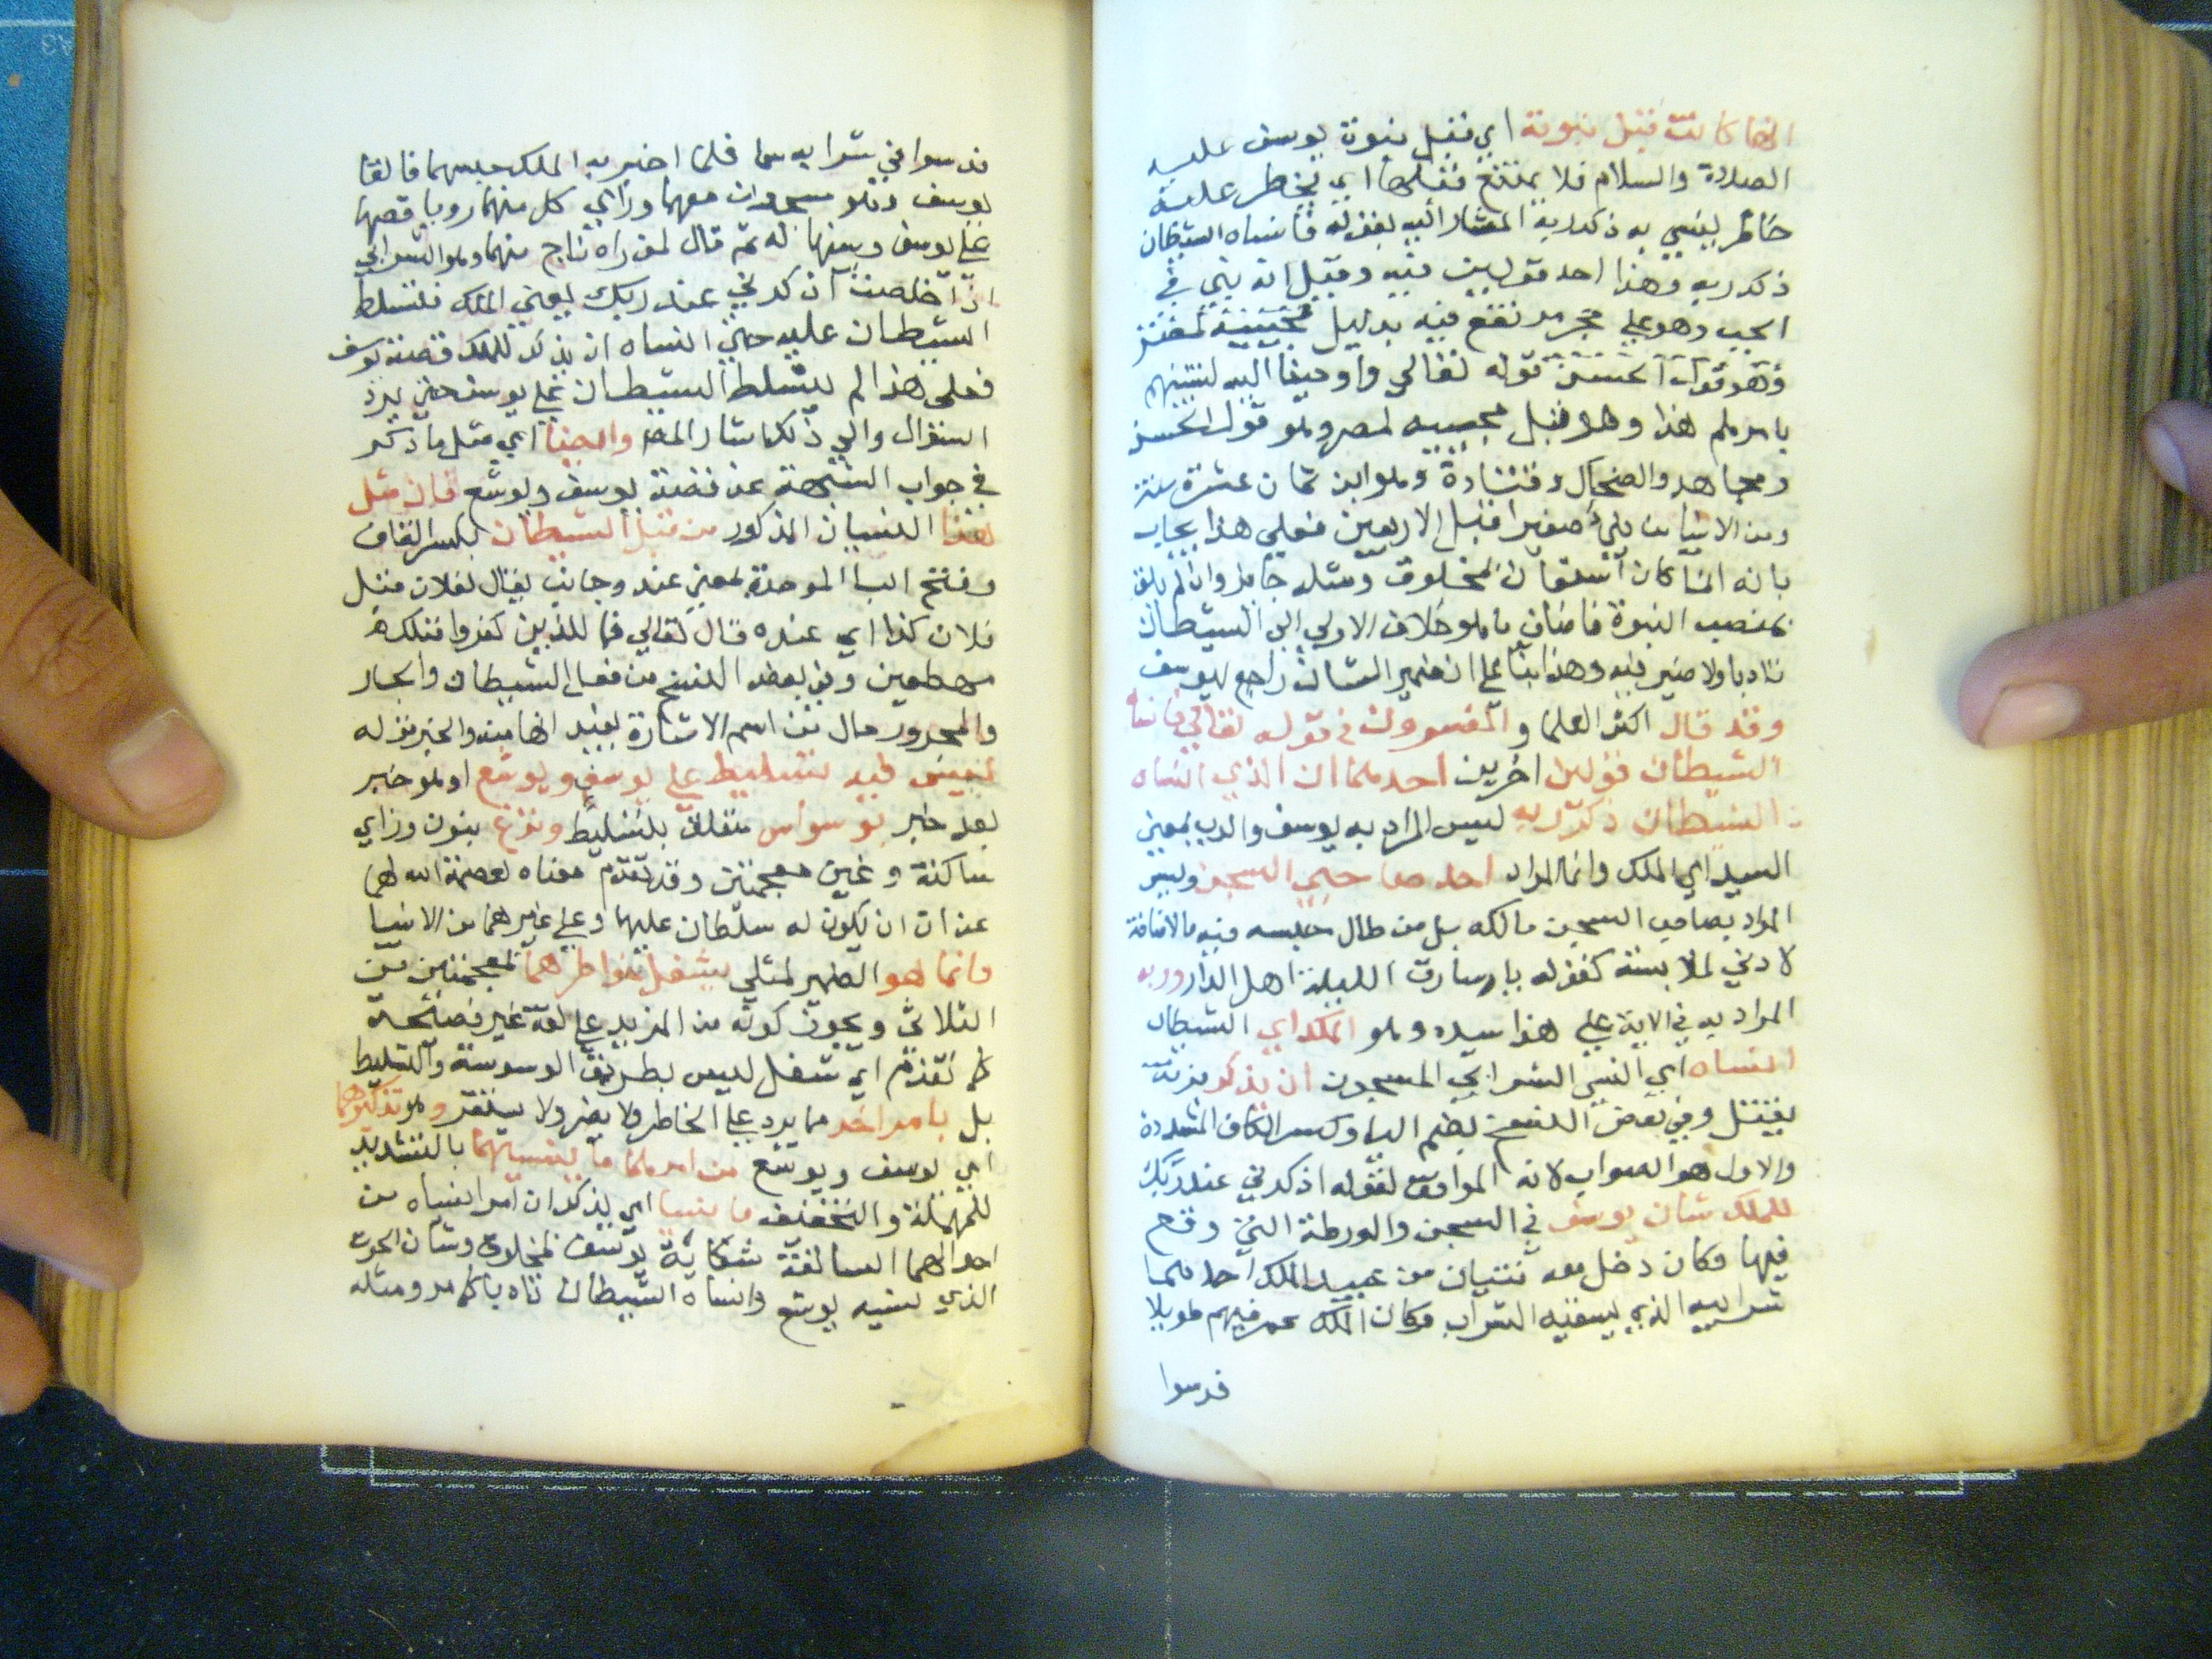 انها كانت قبل نبوته اي قبل نبوة يوسف عليه
الصلاة والسلام فلا يمتنع فعلها اي يخطر عليه
خاطر لينسي به ذكر ربه المشار اليه بقوله فانساه الشيطان
ذكر ربه وهذا احد قولين فيه وقيل انه نبي في
الجب وهو علي حجر مرتفع فيه بدليل
وهو قول الحسن قوله تعالي واوحينا اليه لتنبئنهم
بامرهم هذا وهو قبل مجييه لمصر وهو قول الحسن
ومجاهد والضحاك وقتادة وهو ابن ثمان عشرة سنة
ومن الانبيا من نبي صغيرا قبل الاربعين فعلي هذا يجاب
بانه انما كان استعان بمخلوق ومثله جايز وان لم يلق
بمنصب النبوة فاضاف ما هو خلاف الاولي الي الشيطان
تادبا ولا ضير فيه وهذا بنا علي ان ضمير الشان راجع ليوسف
وقد قال اكثر العلما والمفسرون في قوله تعالي فانساه
الشيطان قولين اخرين احدهما ان الذي انساه
الشيطان ذكر ربه ليس المراد به يوسف والرب بمعني
السيد اي الملك وانما المراد احد صاحبي السجن وليس
المراد بصاحب السجن مالكه بل من طال حبسه فيه فالاضافة
لادني ملابسة كقوله يا سارق الليلة اهل الدار وربه
المراد به في الاية علي هذا سيده وهو الملك اي الشيطان
انساه اي انسي الشرابي المسجون ان يذكر بزنة
يقتل وفي بعض النسخ بضم اليا وكسر الكاف المشددة
والاول هو الصواب لانه الموافق لقوله اذكرني عند ربك
للملك شان يوسف في السجن والورطة التي وقع
فيها وكان دخل معه فتيان من عبيد الملك احدهما
شرابيه الذي يسقيه الشراب وكان الملك عمر فيهم طويلا
فدسوا
فدسوا في شرابه سما فلما اخبر به الملك حبسهما فالقا
يوسف وهو مسجون معهما وراي كل منهما رويا قصها
علي يوسف وعبرها له ثم قال لمن راه ناج منهما وهو الشرابي
اذا خلصت اذكرني عند ربك يعني الملك فتسلط
الشيطان عليه حتي انساه ان يذكر للملك قصة يوسف
فعلي هذا لم يتسلط الشيطان علي يوسف حتي يرد
السؤال والي ذلك اشار المص وايضا اي مثل ما ذكر
في جواب الشبهة عن قصة يوسف ويوشع فان مثل
هذا النسيان المذكور من قبل الشيطان بكسر القاف
وفتح البا الموحدة بمعني عند وجانب يقال لفلان قبل
فلان كذا اي عنده قال تعالي فما للذين كفروا قبلك
مهطعين وفي بعض النسخ من فعل الشيطان والجار
والمجرور حال من اسم الاشارة يفيد انها منه والخبر قوله
ليس فيه تسليط علي يوسف ويوشع او هو خبر
بعد خبر بوسواس متعلق بتسليط ونزغ بنون وزاي
ساكنة وغين معجمتين وقد تقدم معناه لعصمة الله لهما
عن ان يكون له سلطان عليهما وعلي غيرهما من الانبيا
وانما هو الضمير لمثل يشغل خواطرهما بمعجمتين من
الثلاثي ويجوز كونه من المزيد علي لغة غير فصيحة
كما تقدم اي شغل ليس بطريق الوسوسة والتسليط
بل بامر اخر مما يرد علي الخاطر ولا يضر ولا يستقر وهو تذكيرهما
اي يوسف ويوشع من امرهما ما ينسيهما بالتشديد
للمهملة والتخفيف ما نسيا اي يذكران امرا نسياه من
احوالهما السالفة شكاية يوسف لمخلوق وشان الحوت
الذي نسيه يوشع وانساه الشيطان تاه باكله ومثله